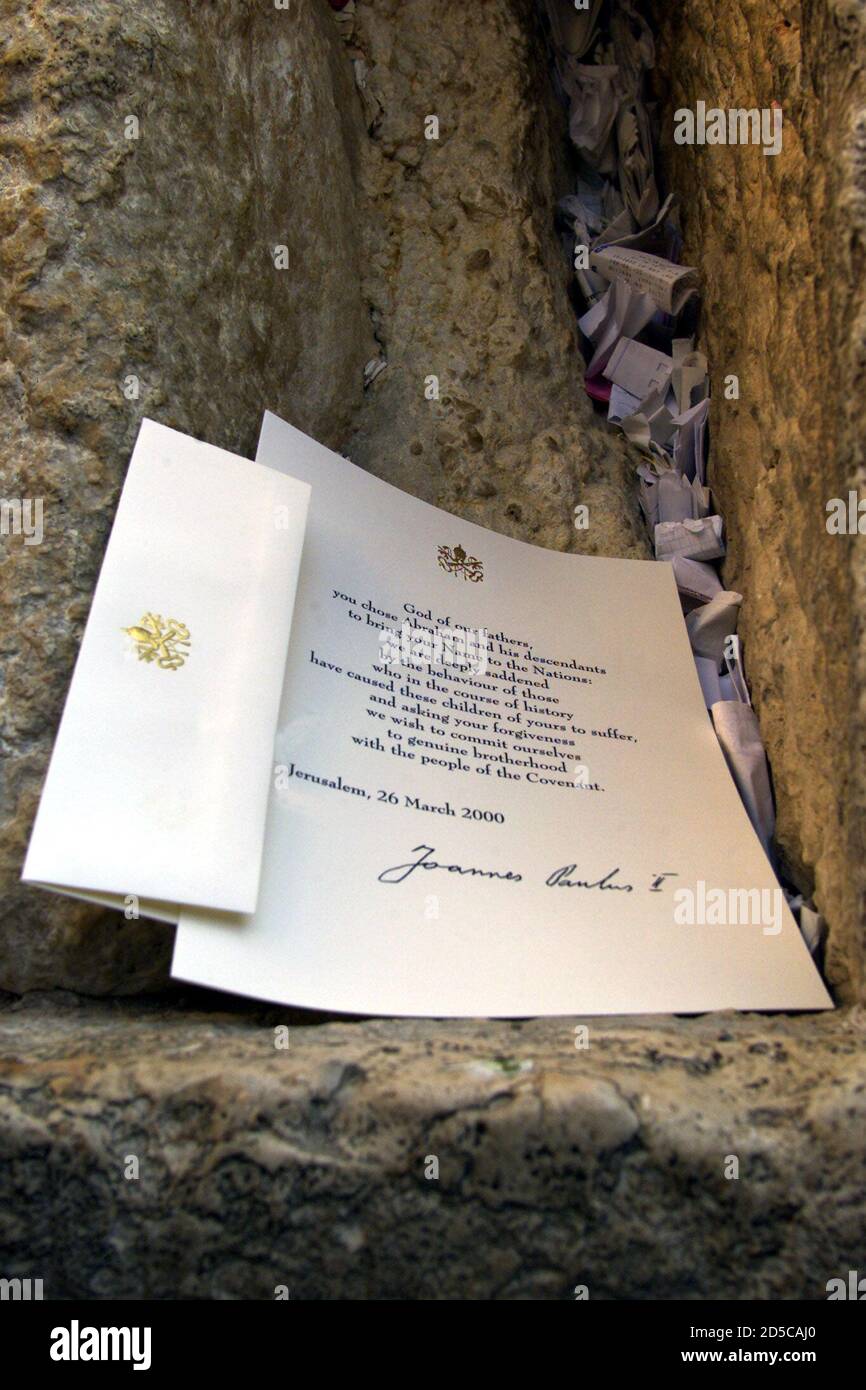 God of our fathers,
you chose Abraham and his descendants
to bring your Name to the Nations:
we are deeply saddened
by the behaviour of those
who in the course of history
have caused these children of yours to suffer,
and asking your forgiveness
we wish to commit ourselves
to genuine brotherhood
with the people of the Covenant.
Jerusalem, 26 March 2000
Joannes Paulus II
alamy
alamy
Image ID: 2D5CAJ0
www.alamy.com